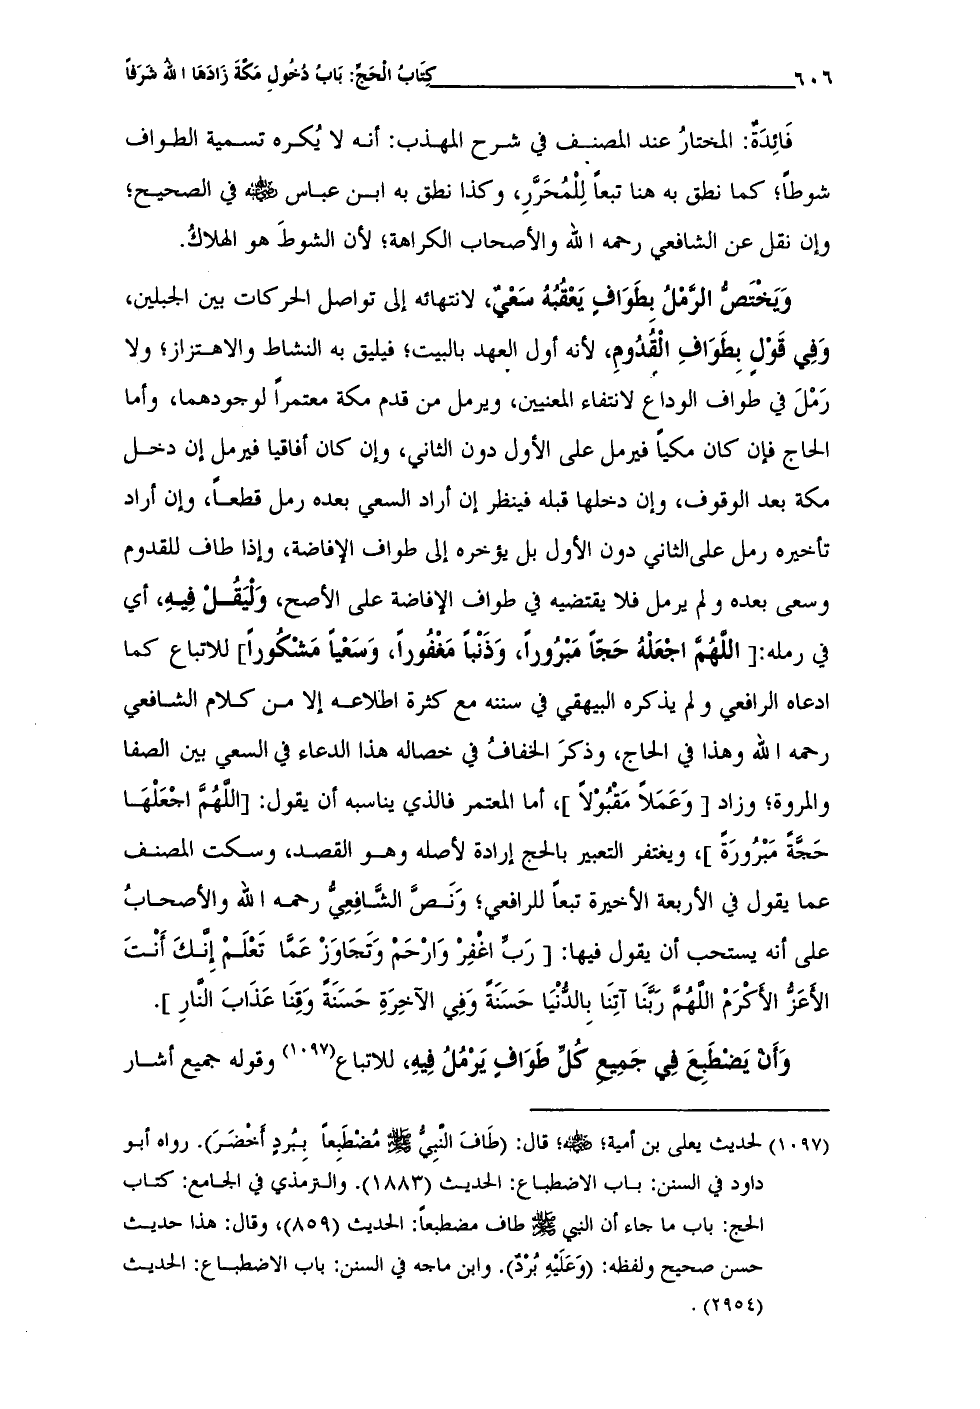 ٦٠٦ كِتَابُ الْحَجِّ: بَابُ دُخُولِ مَكَّةَ زَادَهَا اللهُ شَرَفاً
فَائِدَةٌ: المختارُ عند المصنف في شرح المهذب: أنه لا يُكره تسمية الطواف
شوطاً؛ كما نطق به هنا تبعاً لِلْمُحَرَّرِ، وكذا نطق به ابن عباس ﷺ في الصحيح؛
وإن نقل عن الشافعي رحمه الله والأصحاب الكراهة؛ لأن الشوطَ هو الهلاكُ.
وَيَخْتَصُّ الرَّمْلُ بِطَوَافٍ يَعْقُبُهُ سَعْيٌ، لانتهائه إلى تواصل الحركات بين الجبلين،
وَفِي قَوْلٍ بِطَوَافِ الْقُدُومِ، لأنه أول العهد بالبيت؛ فيليق به النشاط والاهتزاز؛ ولا
رَمْلَ في طواف الوداع لانتفاء المعنيين، ويرمل من قدم مكة معتمراً لوجودهما، وأما
الحاج فإن كان مكياً فيرمل على الأول دون الثاني، وإن كان أفاقيا فيرمل إن دخل
مكة بعد الوقوف، وإن دخلها قبله فينظر إن أراد السعي بعده رمل قطعاً، وإن أراد
تأخيره رمل على الثاني دون الأول بل يؤخره إلى طواف الإفاضة، وإذا طاف للقدوم
وسعى بعده ولم يرمل فلا يقتضيه في طواف الإفاضة على الأصح، وَلْيَقُلْ فِيهِ، أي
في رمله:[ اللَّهُمَّ اجْعَلْهُ حَجّاً مَبْرُوراً، وَذَنْباً مَغْفُوراً، وَسَعْياً مَشْكُوراً] للاتباع كما
ادعاه الرافعي ولم يذكره البيهقي في سننه مع كثرة اطلاعه إلا من كلام الشافعي
رحمه الله وهذا في الحاج، وذكرَ الخفافُ في خصاله هذا الدعاء في السعي بين الصفا
والمروة؛ وزاد [ وَعَمَلاً مَقْبُوْلاً ]، أما المعتمر فالذي يناسبه أن يقول: [اللَّهُمَّ اجْعَلْهَا
حَجَّةً مَبْرُورَةً ]، ويغتفر التعبير بالحج إرادة لأصله وهو القصد، وسكت المصنف
عما يقول في الأربعة الأخيرة تبعاً للرافعي؛ وَنَصَّ الشَّافِعِيُّ رحمه الله والأصحابُ
على أنه يستحب أن يقول فيها: [ رَبِّ اغْفِرْ وَارْحَمْ وَتَجَاوَزْ عَمَّا تَعْلَمْ إِنَّكَ أَنْتَ
الأَعَزُّ الأَكْرَمْ اللَّهُمَّ رَبَّنَا آتِنَا بِالدُّنْيَا حَسَنَةً وَفِي الآخِرَةِ حَسَنَةً وَقِنَا عَذَابَ النَّارِ ].
وَأَنْ يَضْطَبِعَ فِي جَمِيعِ كُلِّ طَوَافٍ يَرْمُلُ فِيهِ، للاتباع(١٠٩٧) وقوله جميع أشار
(١٠٩٧) لحديث يعلى بن أمية؛ ﷺ؛ قال: (طَافَ النَّبِيُّ ﷺ مُضْطَبِعاً بِبُرْدٍ أَخْضَرَ). رواه أبو
داود في السنن: باب الاضطباع: الحديث (١٨٨٣). والترمذي في الجامع: كتاب
الحج: باب ما جاء أن النبي ﷺ طاف مضطبعاً: الحديث (٨٥٩)، وقال: هذا حديث
حسن صحيح ولفظه: (وَعَلَيْهِ بُرْدٌ). وابن ماجه في السنن: باب الاضطباع: الحديث
(٢٩٥٤).